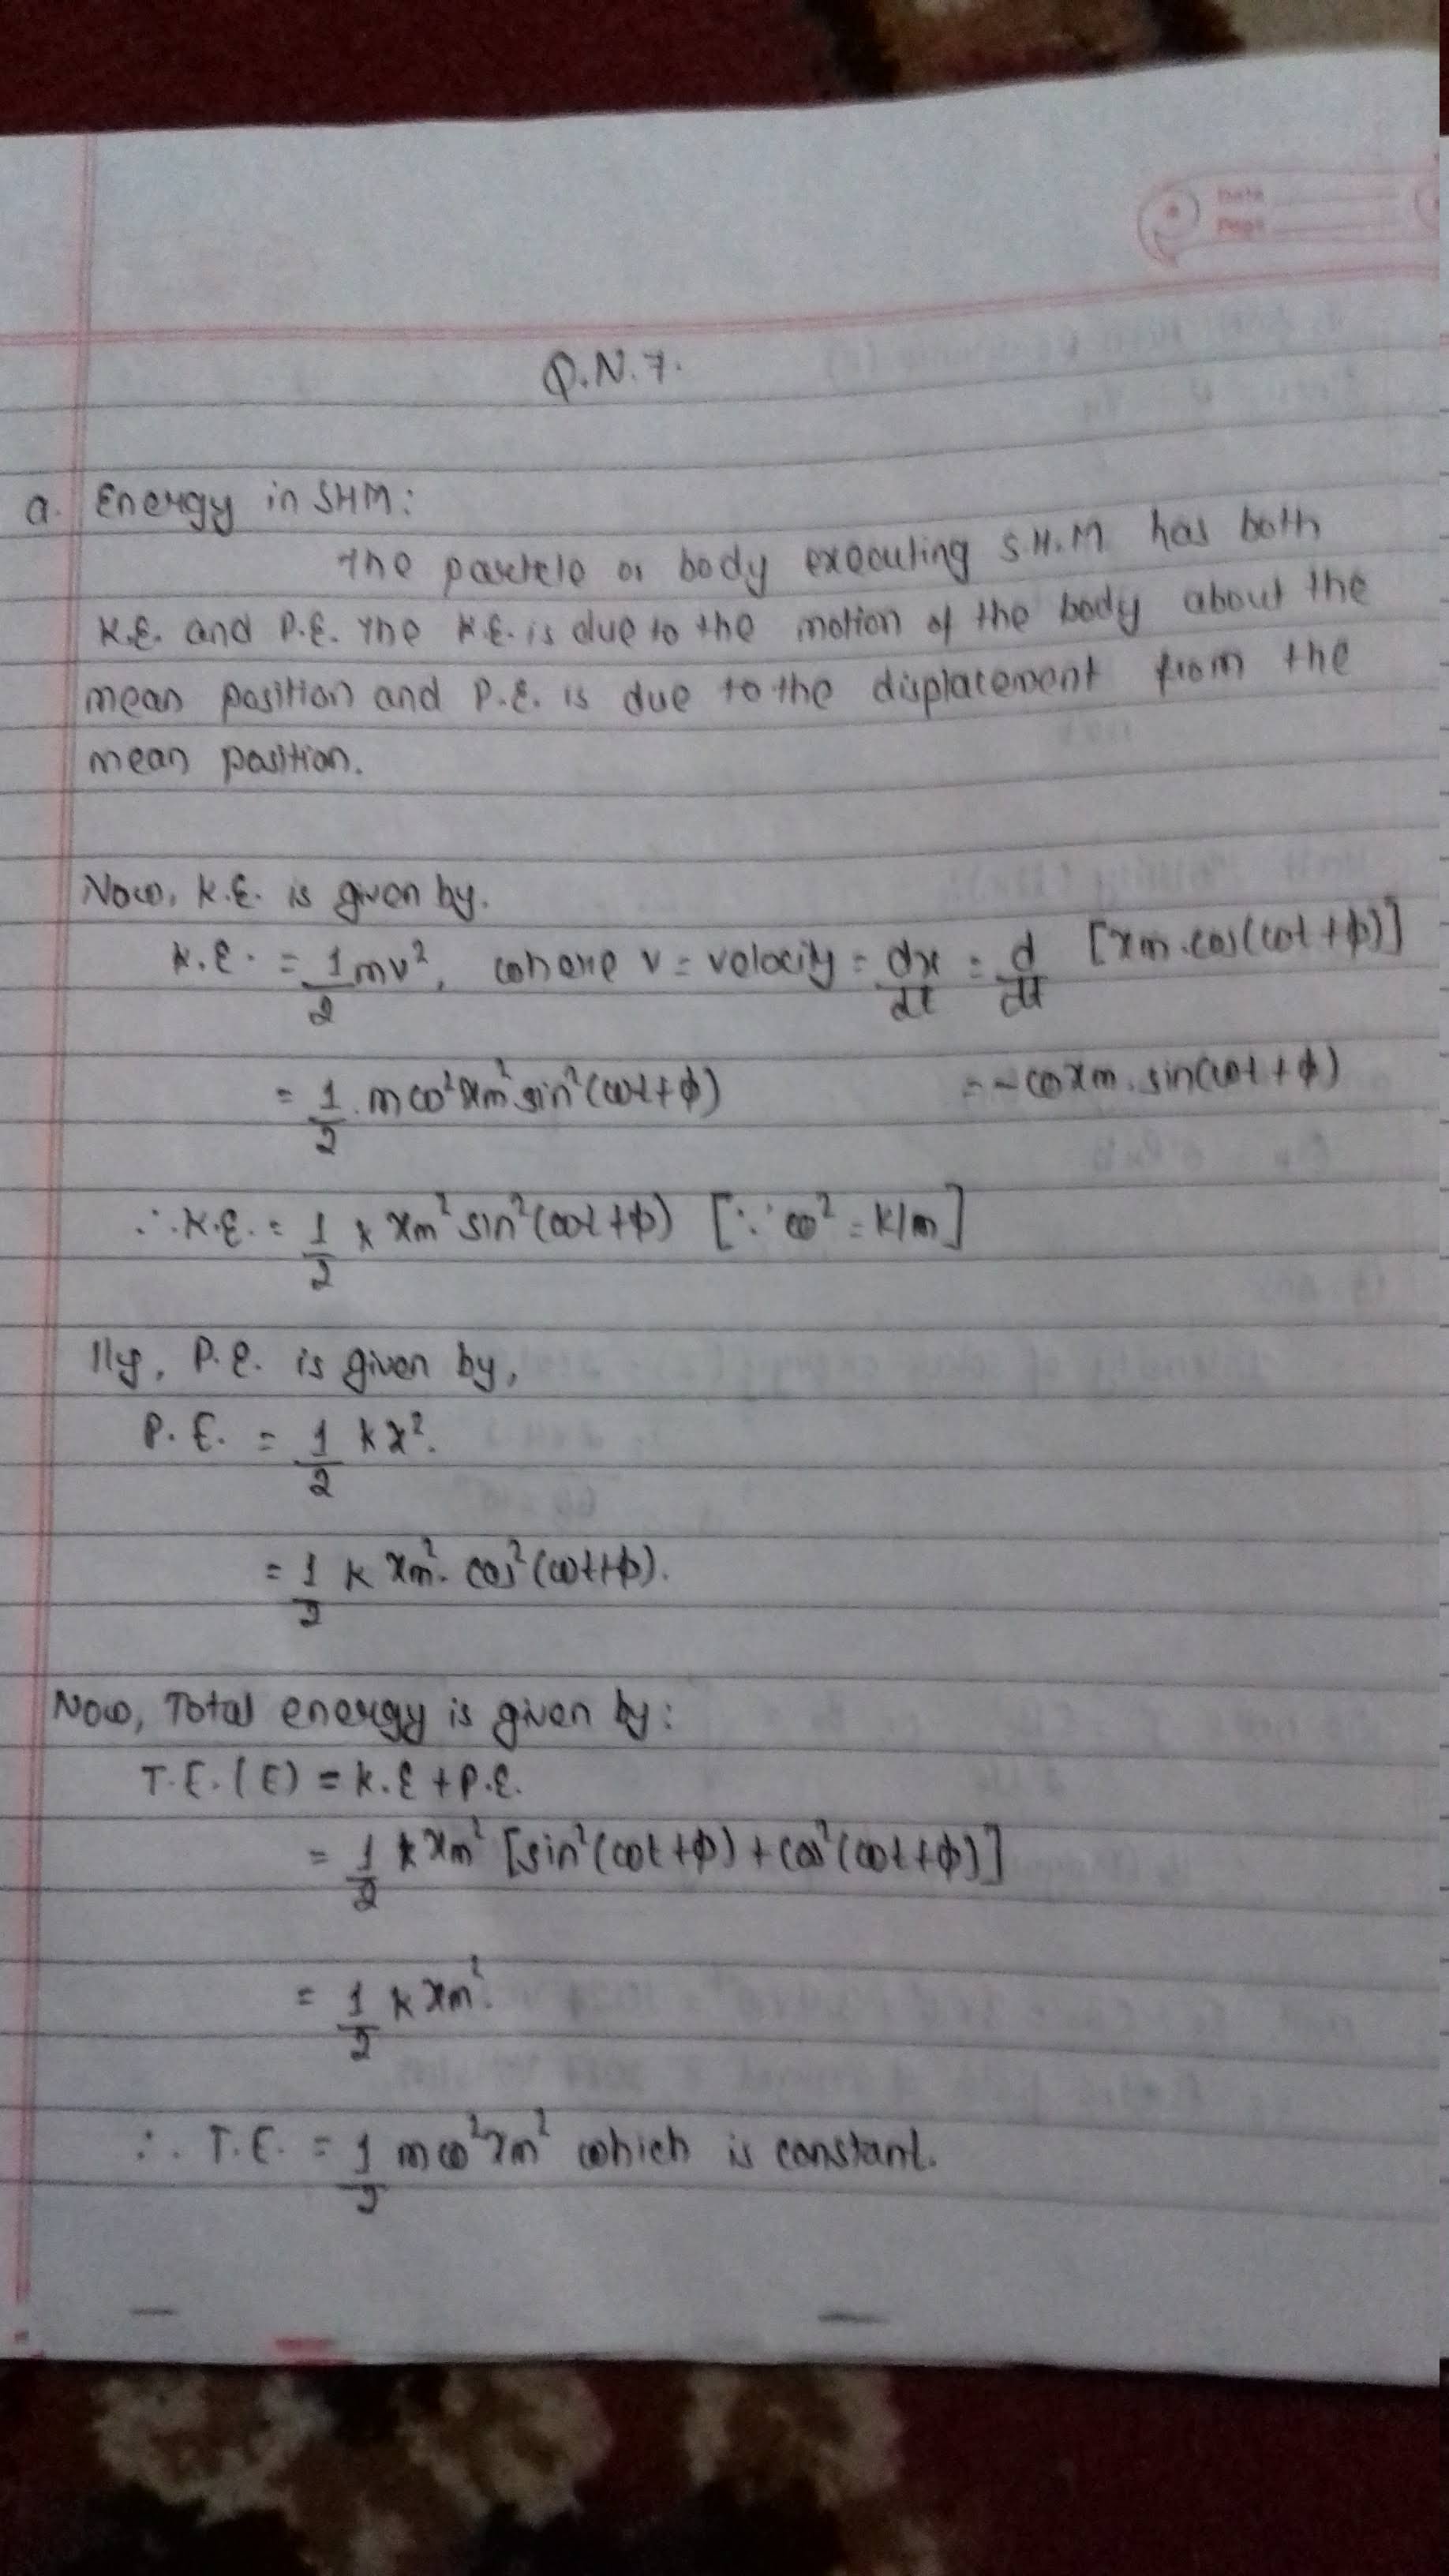 Date
Page
Q.N.7.
a. Energy in SHM:
The particle or body executing S.H.M has both
K.E. and P.E. The K.E. is due to the motion of the body about the
mean position and P.E. is due to the displacement from the
mean position.
Now, K.E. is given by.
K.E. = 1/2 mv², where v = velocity = dx/dt = d/dt [xm.cos(ωt+φ)]
= 1/2 . mω²xm² sin²(ωt+φ) = -ωxm.sin(ωt+φ)
∴ K.E. = 1/2 k xm² sin²(ωt+φ) [∵ ω² = k/m]
lly, P.E. is given by,
P.E. = 1/2 kx².
= 1/2 k xm². cos²(ωt+φ).
Now, Total energy is given by:
T.E. (E) = K.E + P.E.
= 1/2 k xm² [sin²(ωt+φ) + cos²(ωt+φ)]
= 1/2 k xm².
∴ T.E. = 1/2 mω²xm² which is constant.